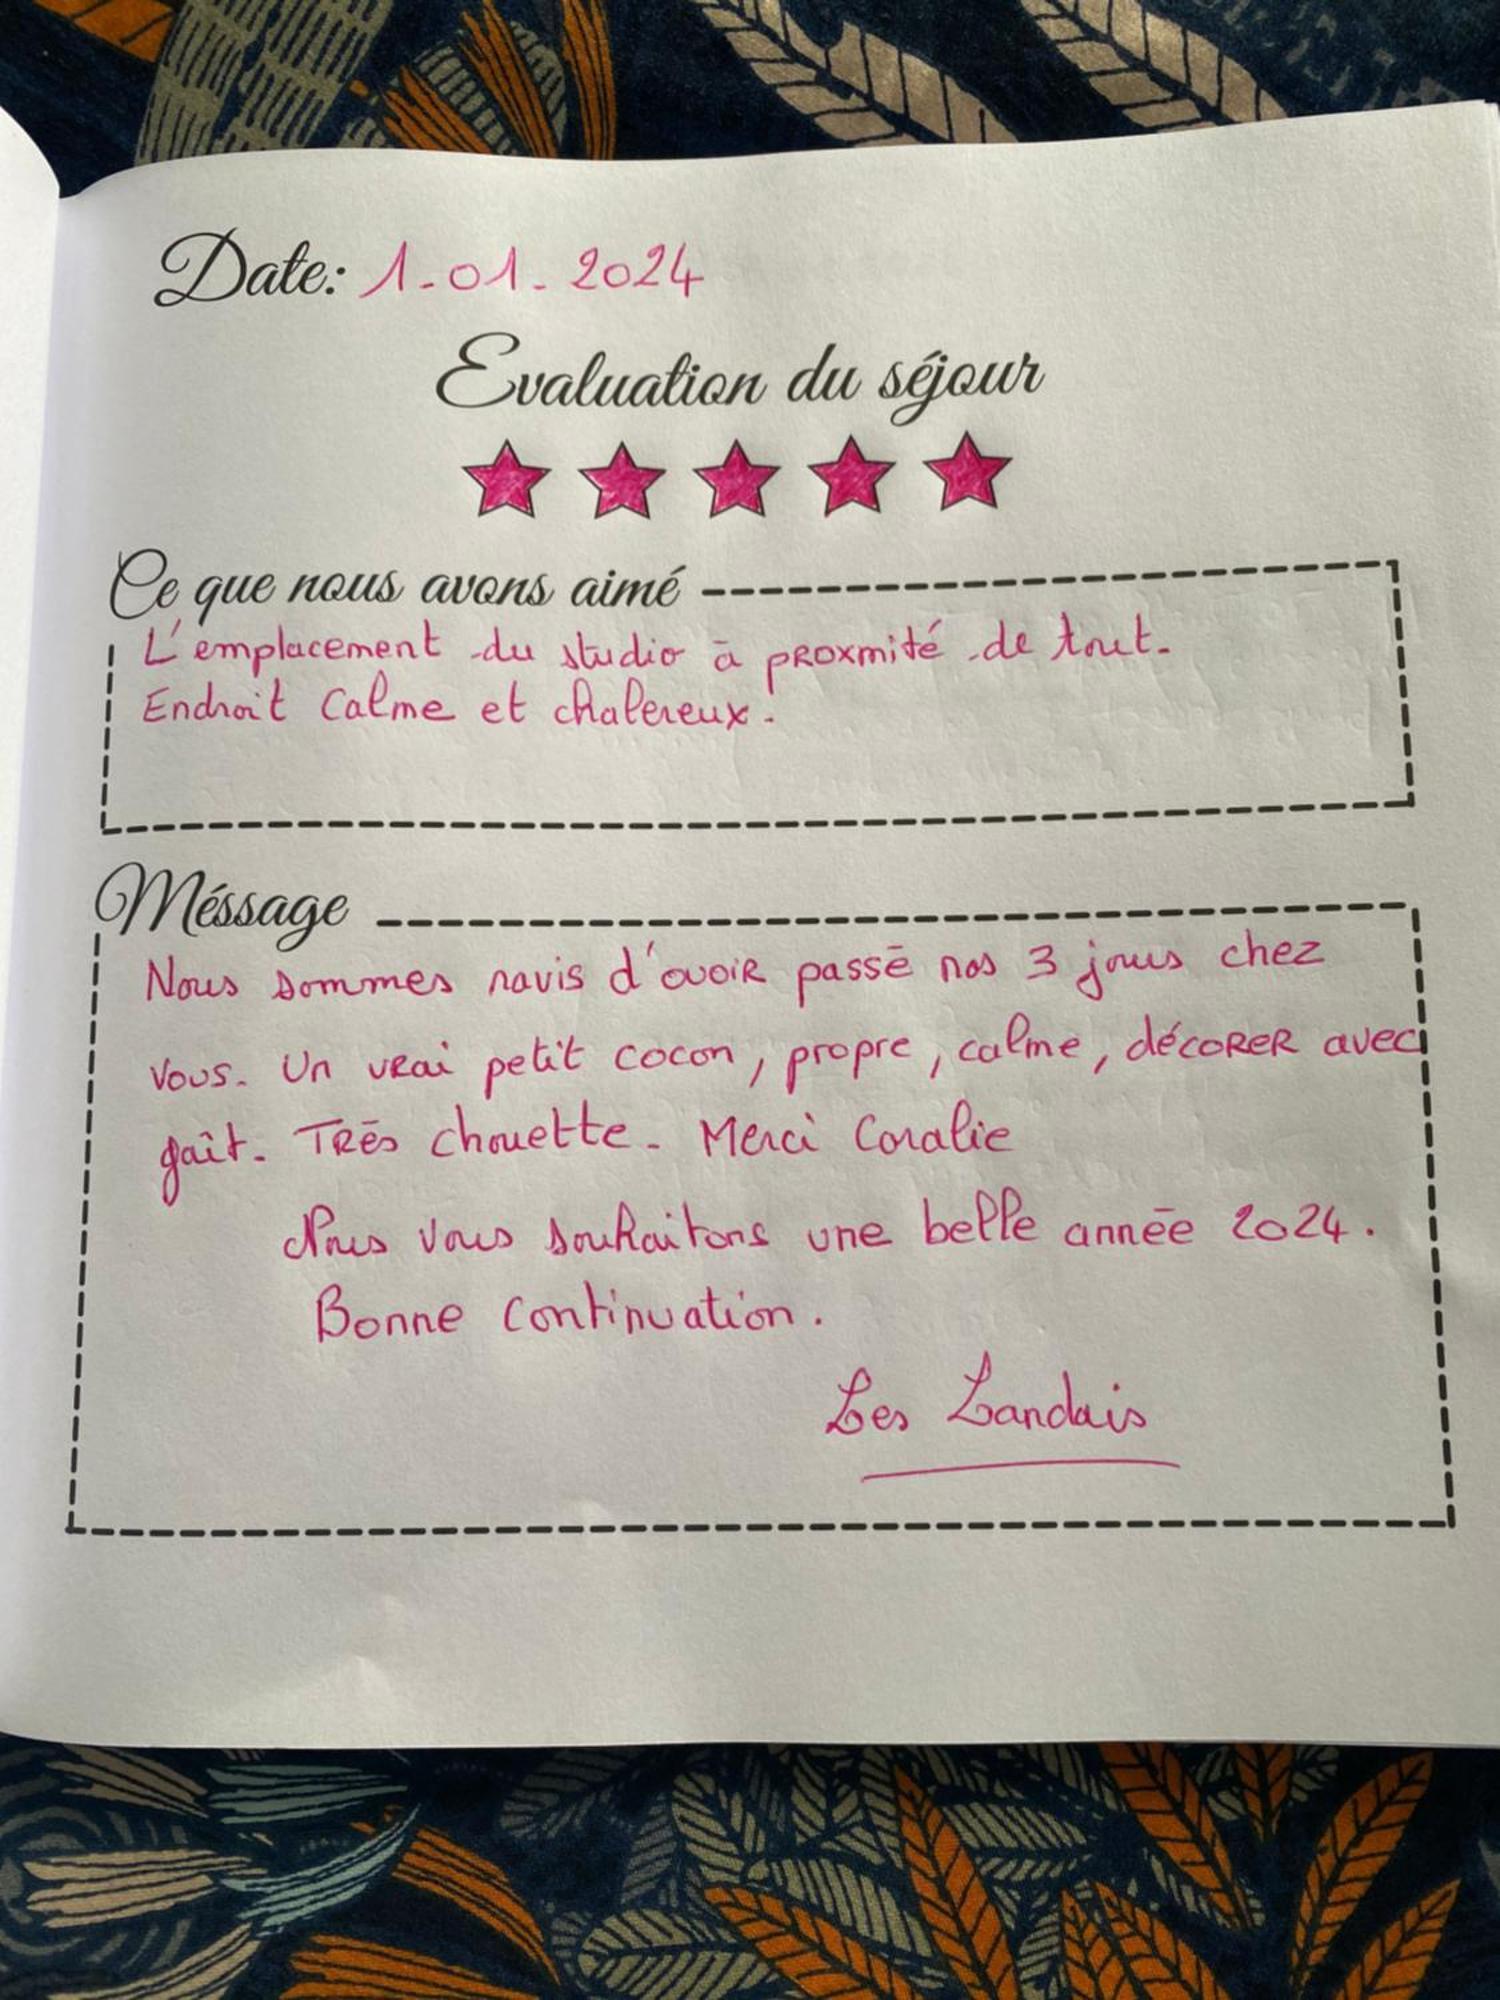 Date: 1.01.2024
Evaluation du séjour
Ce que nous avons aimé
L'emplacement du studio à proxmité de tout.
Endroit calme et chalereux.
Méssage
Nous sommes ravis d'avoir passé nos 3 jours chez
vous. Un vrai petit cocon, propre, calme, décorer avec
goût. Très chouette. Merci Coralie
Nous vous souhaitons une belle année 2024.
Bonne continuation.
Les Landais